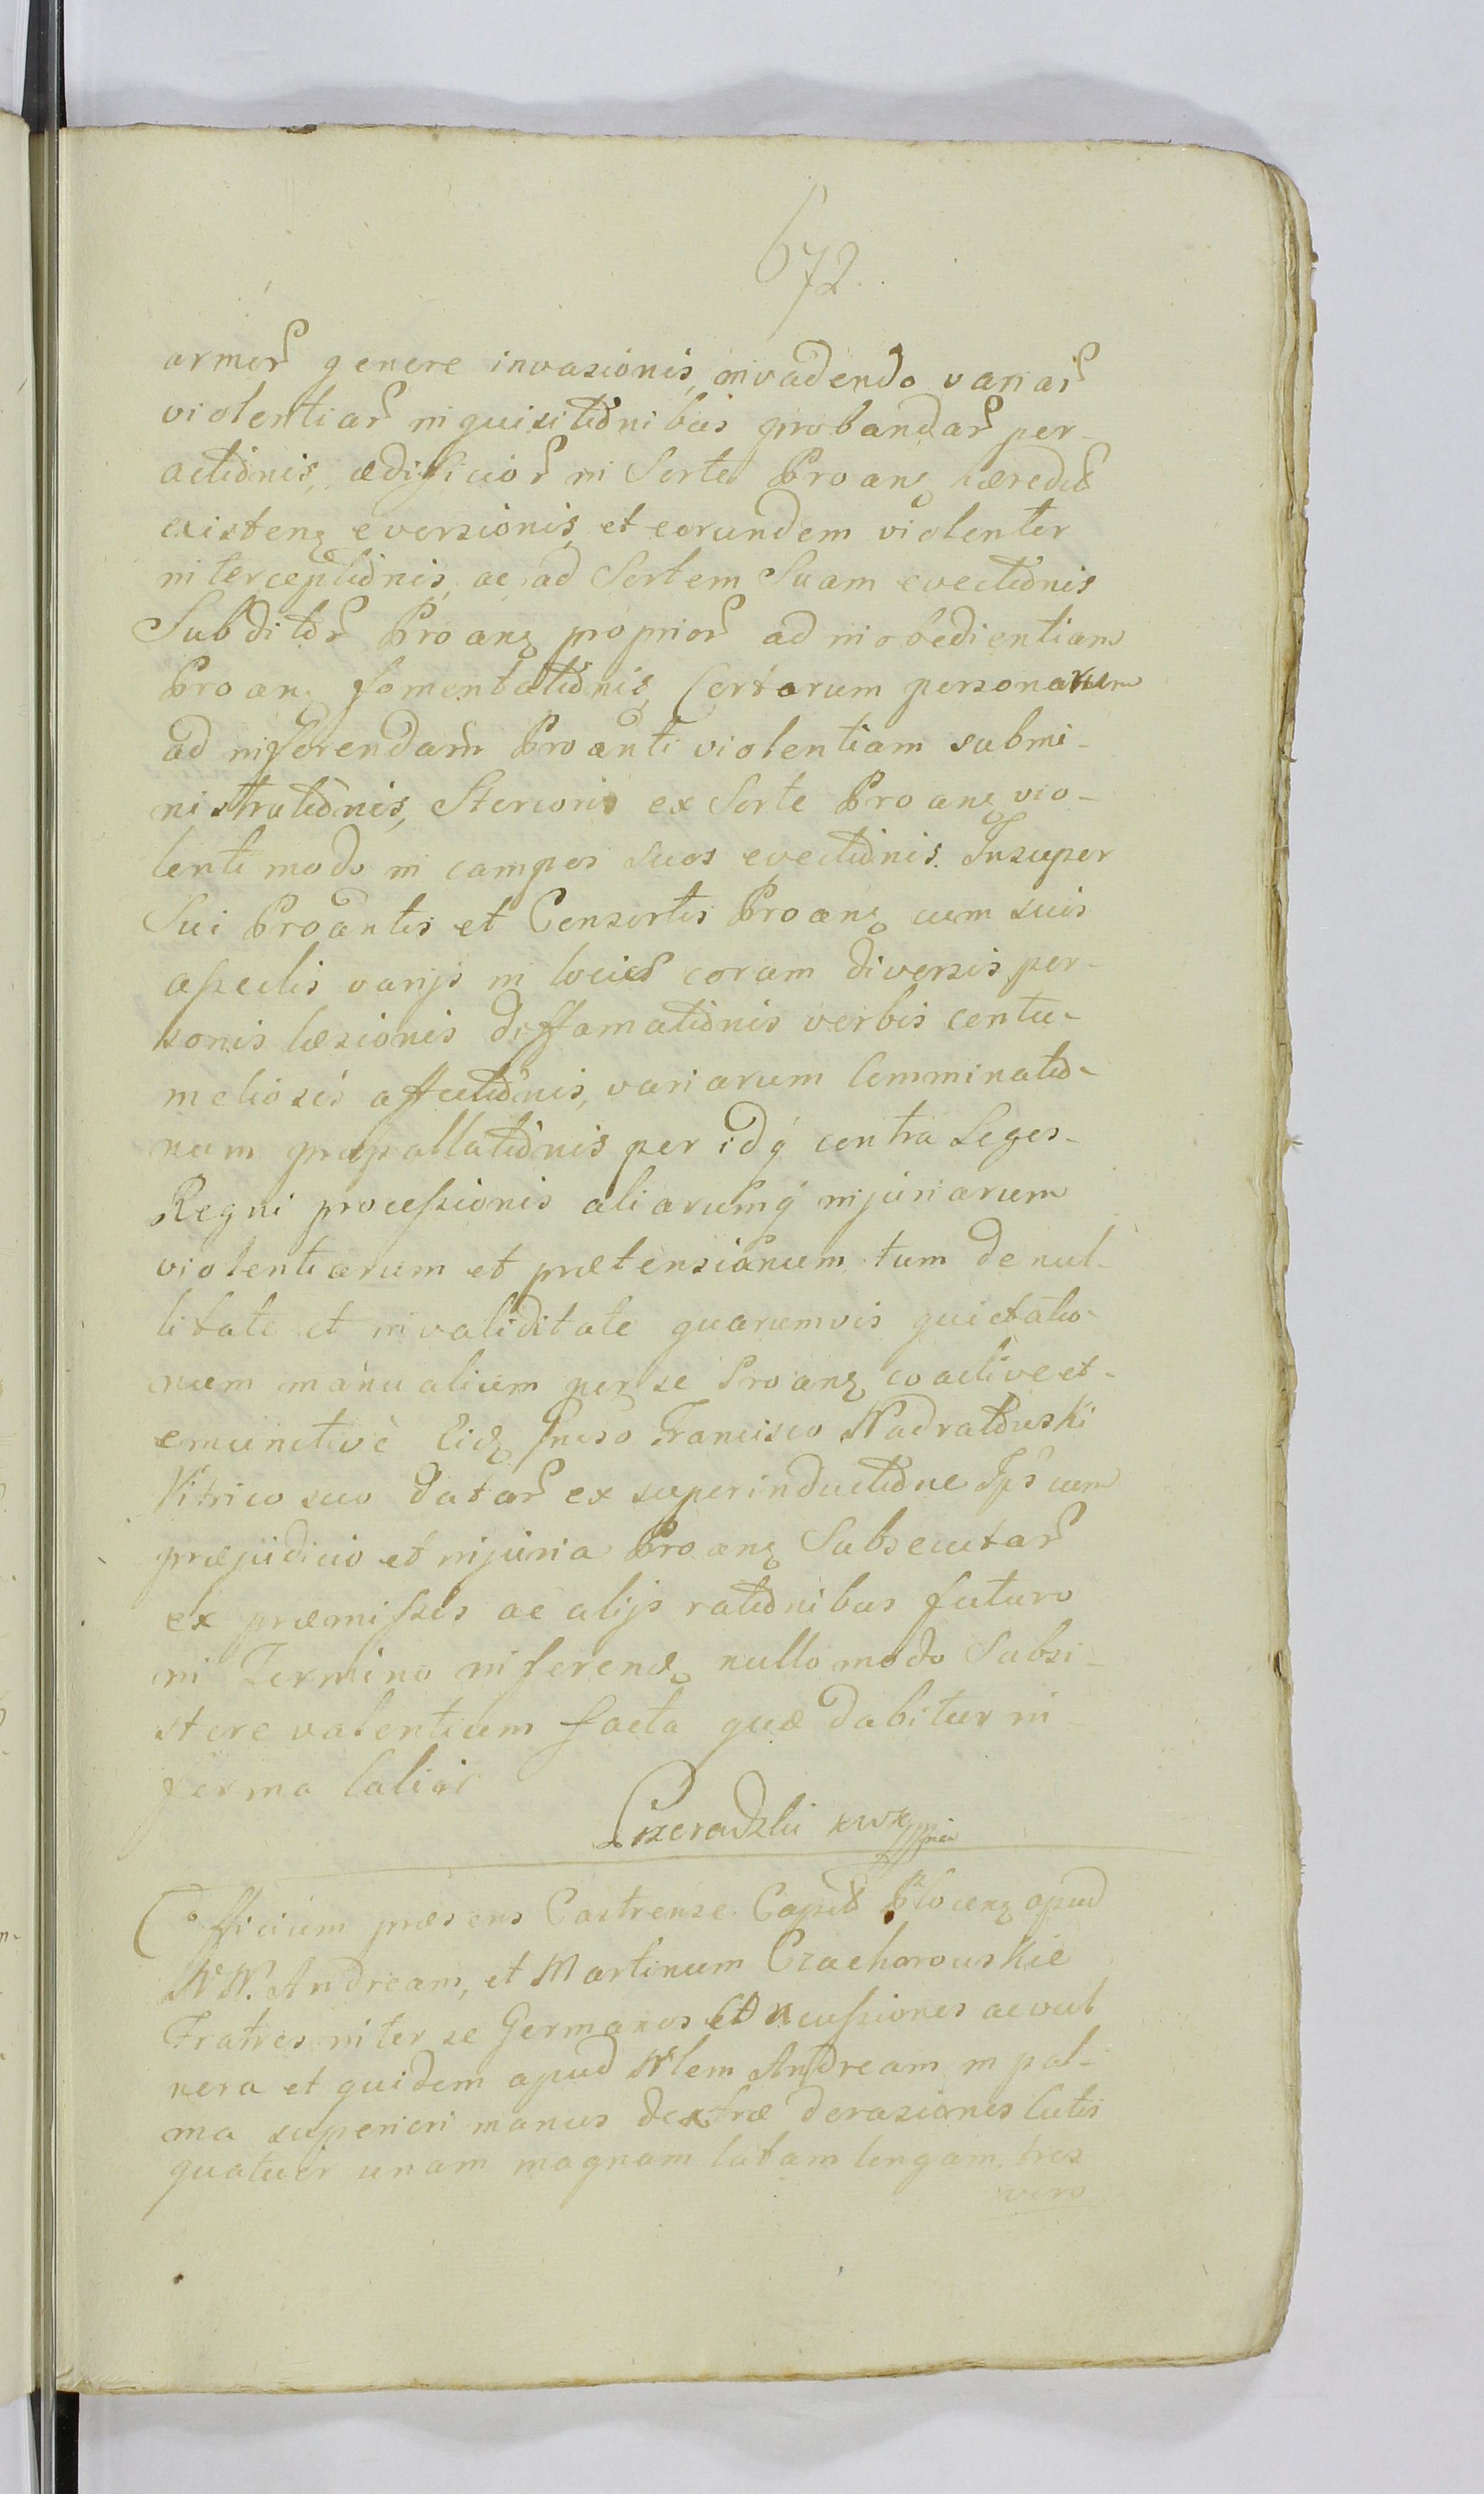 672.
armor̃ genere invasionis, invadendo variar̃
violentiar̃ inquisitiõnibus probandar̃ per-
actiõnis, ædificior̃ in Sorte Proanꝫ hæredit̃
existenꝫ eversionis, et eorundem violenter
interceptiõnis, ac ad Sortem Suam evectiõnis
Subditor̃ Proanꝫ proprior̃ ad inobedientiam
Proanꝫ fomentatiõnis, Certarum personarum
ad inferendam Proanti violentiam submi-
nistratiõnis, Stercoris ex Sorte Proanꝫ vio-
lenti modo in campos suos evectiõnis. Insuper
Sui Proantis et Consortis Proanꝫ cum suis
asseclis varijs in locis coram diversis per-
sonis læsionis diffamatiõnis verbis contu-
meliosis affectiõnis, variarum Comminatiõ-
num præpallatiõnis per idq́ contra Leges
Regni processionis aliarumq́ injuriarum
violentiarum et prætensionum tum de nul-
litate et invaliditate quarumvis quietatio-
num manualium per se Proanꝫ coactive et
emunctivè Eidꝫ Gnoso Francisco Nadratowski
Vitrico suo datar̃ ex superinductiõne Ips̃ cum
præjudicio et injuria Proanꝫ Subsecutar̃
ex præmissis ac alijs ratiõnibus futuro
in Termino inferendꝫ nullo modo Subsi-
stere valentium facta quæ dabitur in
forma latiori

Officium præsens Castrense Capit̃ Plocenꝫ apud
WW. Andream, et Martinum Czachorowskie
Fratres inter se Germanos Conცussiones ac vul
nera et quidem apud Wlem Andream in pal-
ma superiori manus dextræ derasiones cutis
quatuor unam magnam latam longam, tres
vero